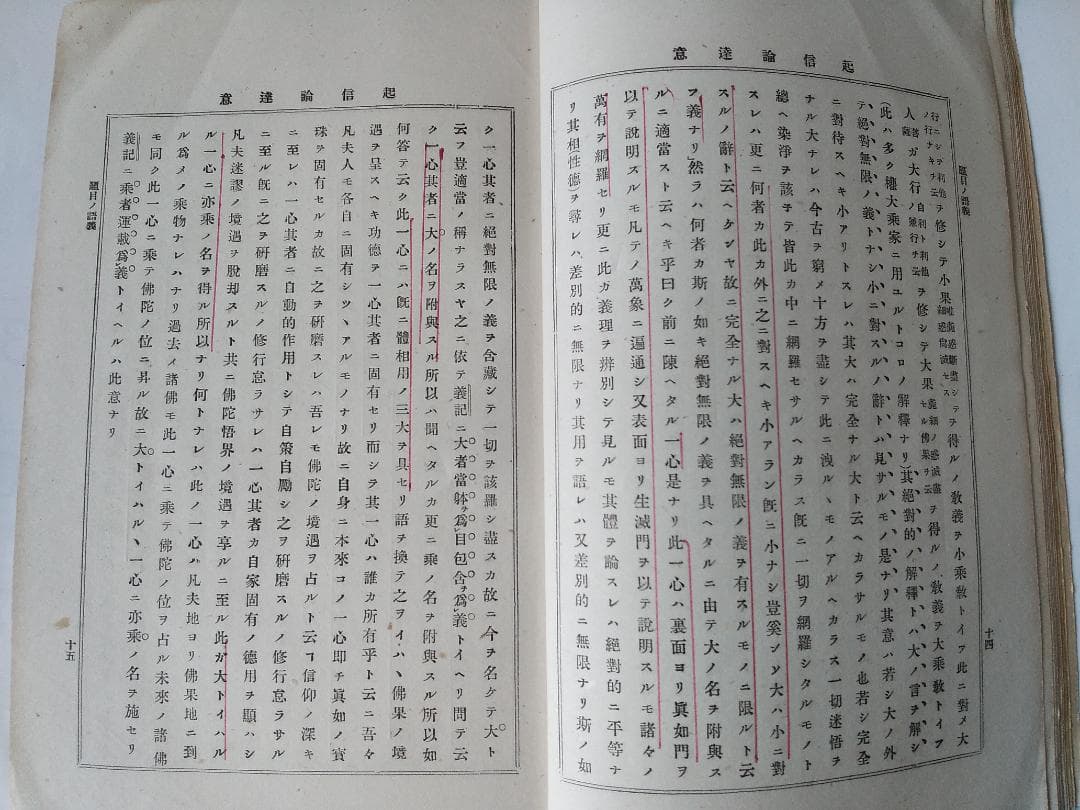 起信論達意
題目ノ語義
十四
行ニシテ利他ノ行ナキヲ云フヲ修シテ小果ヲ得ルノ教義ヲ小乘教トイフ此ニ對メ大
人菩薩ガ大行自利ト利他ノ兼行ヲ云フヲ修シテ大果ヲ得ルノ教義ヲ大乘教トイフ
(此ハ多ク權大乘家ニ用ユルトコロノ解釋ナリ)其絕對的ノ解釋トハ大ノ言ヲ解シ
テ絕對無限ノ義トナシ小ニ對スルノ辭トハ見サルモノ是ナリ其意ハ若シ大ノ外
ニ對待スヘキ小アリトスレハ其大ハ完全ナル大ト云ヘカラサルモノ也若シ完全
ナル大ナレハ今古ヲ窮メ十方ヲ盡シテ此ニ洩ルヽモノアルヘカラス一切迷悟ヲ
總ヘ染淨ヲ該子テ皆此カ中ニ網羅セサルヘカラス既ニ一切ヲ網羅シタルモノト
スレハ更ニ何者カ此カ外ニ之ニ對スヘキ小アラン既ニ小ナシ豈奚ンソ大ハ小ニ對
スルノ辭ト云ヘケンヤ故ニ完全ナル大ハ絕對無限ノ義ヲ有スルモノニ限ルト云
フ義ナリ然ラハ何者カ斯ノ如キ絕對無限ノ義ヲ具ヘタルニ由テ大ノ名ヲ附與ス
ルニ適當スト云ヘキ乎曰ク前ニ陳ヘタル一心是ナリ此一心ハ裏面ヨリ眞如門ヲ
以テ說明スルモ凡テノ萬象ニ遍通シ又表面ヨリ生滅門ヲ以テ說明スルモ諸々ノ
萬有ヲ網羅セリ更ニ此ガ義理ヲ辨別シテ見ルモ其體ヲ論スレハ絕對的ニ平等ナ
リ其相(性德)ヲ尋レハ差別的ニ無限ナリ其用ヲ語レハ又差別的ニ無限ナリ斯ノ如
起信論達意
ク一心其者ニ絕對無限ノ義ヲ含藏シテ一切ヲ該羅シ盡スカ故ニ今ヲ名ケテ大ト
云フ豈適當ノ稱ナラスヤ之ニ依テ義記ニ大者當躰ヲ爲㆑目包含ヲ爲㆑義トイヘリ問テ云
ク一心其者ニ大ノ名ヲ附與スル所以ハ聞ヘタルカ更ニ乘ノ名ヲ附與スル所以如
何答テ云ク此一心ニハ既ニ體相用ノ三大ヲ具セリ語ヲ換テ之ヲイハヽ佛果ノ境
遇ヲ呈スヘキ功德ヲ一心其者ニ固有セリ而シテ其一心ハ誰カ所有乎ト云ニ吾々
凡夫人モ各自ニ固有シツヽアルモノナリ故ニ自身ニ本來コノ一心即チ眞如ノ寶
珠ヲ固有セルカ故ニ之ヲ研磨スレハ吾レモ佛陀ノ境遇ヲ占ルト云フ信仰ノ深キ
ニ至レハ一心其者ニ自動的作用トシテ自策自勵シ之ヲ研磨スルノ修行怠ラサル
ニ至ル既ニ之ヲ研磨スルノ修行怠ラサレハ一心其者カ自家固有ノ德用ヲ顯ハシ
凡夫迷謬ノ境遇ヲ脫却スルト共ニ佛陀悟界ノ境遇ヲ享ルニ至ル此ガ大トイハル
ル一心ニ亦乘ノ名ヲ得ル所以ナリ何トナレハ此ノ一心ハ凡夫地ヨリ佛果地ニ到
ル爲メノ乘物ナレハナリ過去ノ諸佛モ此一心ニ乘テ佛陀ノ位ヲ占ル未來ノ諸佛
モ同ク此一心ニ乘テ佛陀ノ位ニ昇ル故ニ大トイハルヽ一心ニ亦乘ノ名ヲ施セリ
義記ニ乘者運載爲㆑義トイヘルハ此意ナリ
題目ノ語義
十五